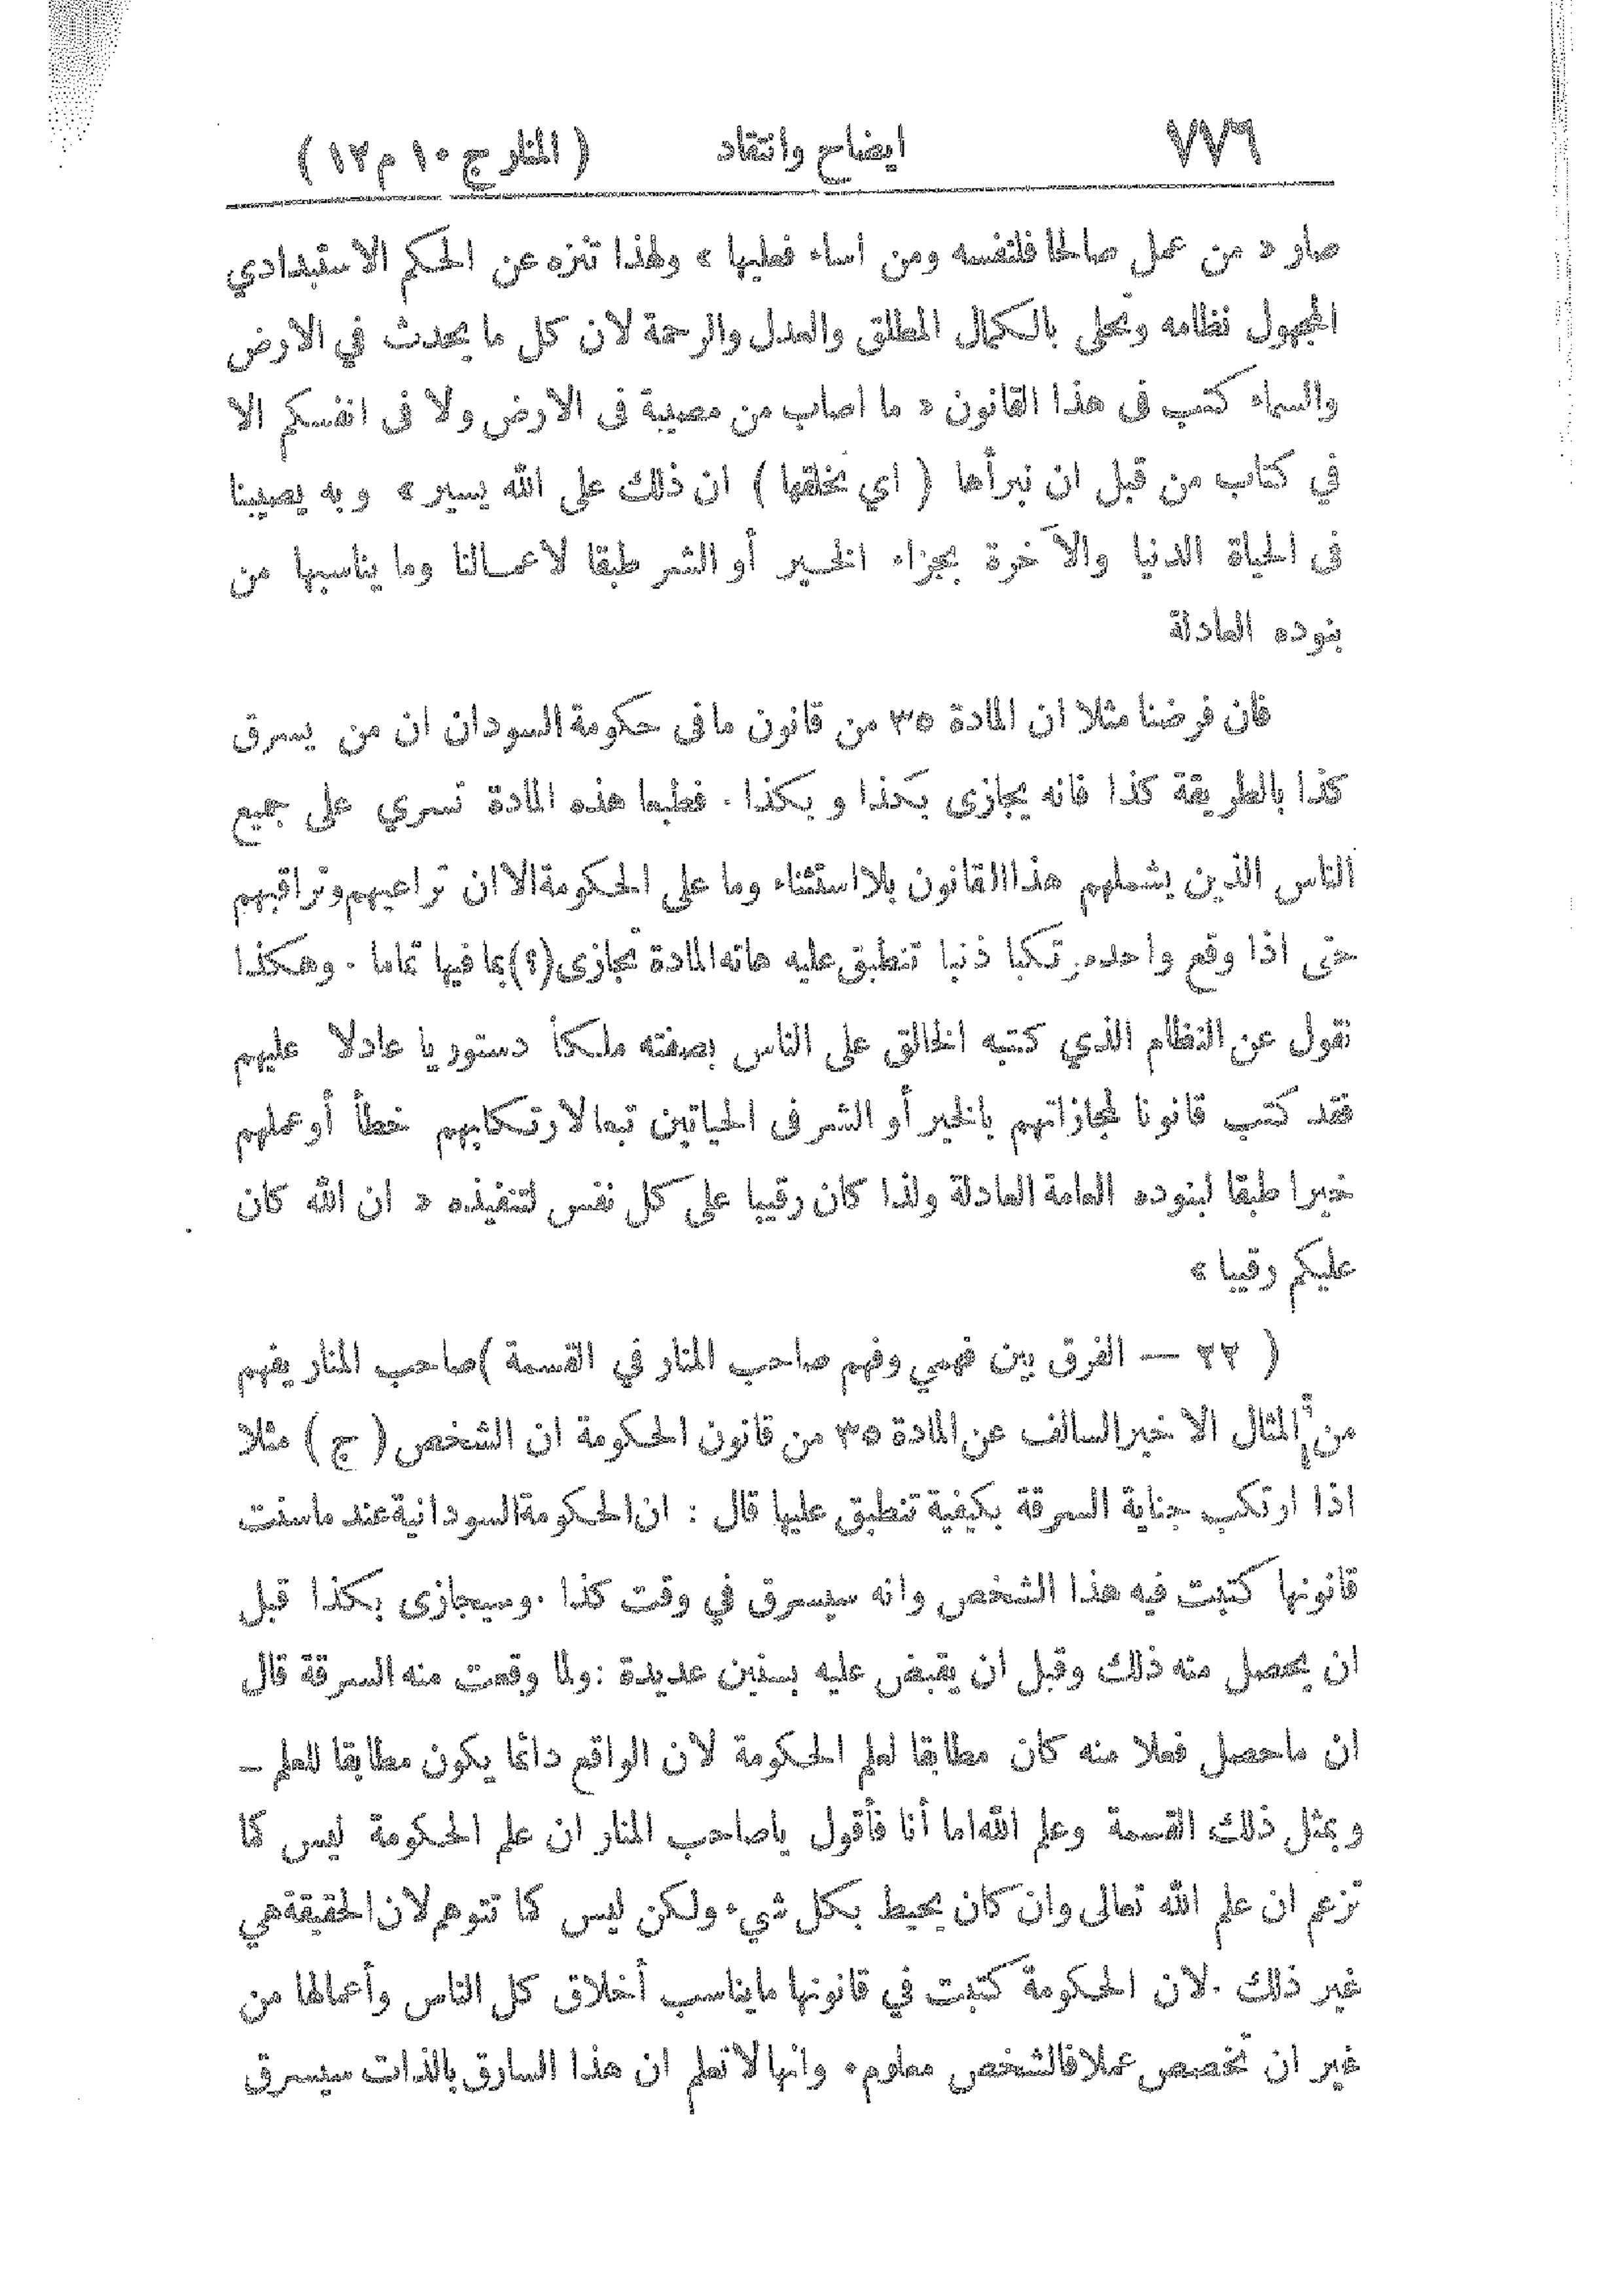 ٧٧٦ ايضاح وانتقاد ( المنار ج ١٠ م ١٢ )
صار « من عمل صالحا فلنفسه ومن اساء فعليها » ولهذا تنزه عن الحكم الاستبدادي
المجهول نظامه وتحلى بالكمال المطلق والعدل والرحمة لان كل ما يحدث في الارض
والسماء كتب في هذا القانون « ما اصاب من مصيبة فى الارض ولا فى انفسكم الا
في كتاب من قبل ان نبرأها ( اي نخلقها ) ان ذلك على الله يسير » وبه يصيبنا
فى الحياة الدنيا والآخرة بجزاء الخير أو الشر طبقا لاعمالنا وما يناسبها من
بنوده العادلة
فان فرضنا مثلا ان المادة ٣٥ من قانون ما فى حكومة السودان ان من يسرق
كذا بالطريقة كذا فانه يجازى بكذا وبكذا . فطبعا هذه المادة تسري على جميع
الناس الذين يشملهم هذا القانون بلا استثناء وما على الحكومة الا ان تراعيهم وتراقبهم
حتى اذا وقع واحد مرتكبا ذنبا تنطبق عليه هاته المادة تجازى (؟) بما فيها تماما . وهكذا
نقول عن النظام الذي كتبه الخالق على الناس بصفته ملكاً دستوريا عادلا عليهم
فقد كتب قانونا لمجازاتهم بالخير أو الشر فى الحياتين تبعا لارتكابهم خطأ أو عملهم
خيرا طبقا لبنوده العامة العادلة ولذا كان رقيبا على كل نفس لتنفيذه « ان الله كان
عليكم رقيبا »
( ٢٢ — الفرق بين فهمي وفهم صاحب المنار في القسمة ) صاحب المنار يفهم
من المثال الاخير السالف عن المادة ٣٥ من قانون الحكومة ان الشخص ( ج ) مثلا
اذا ارتكب جناية السرقة بكيفية تنطبق عليها قال : ان الحكومة السودانية عند ما سنت
قانونها كتبت فيه هذا الشخص وانه سيسرق في وقت كذا . وسيجازى بكذا قبل
ان يحصل منه ذلك وقبل ان يقبض عليه بسنين عديدة : ولما وقعت منه السرقة قال
ان ماحصل فعلا منه كان مطابقا لعلم الحكومة لان الواقع دائما يكون مطابقا للعلم –
وبمثل ذلك القسمة وعلم الله اما أنا فأقول ياصاحب المنار ان علم الحكومة ليس كما
تزعم ان علم الله تعالى وان كان يحيط بكل شيء ولكن ليس كما تتوهم لان الحقيقة هي
غير ذلك . لان الحكومة كتبت في قانونها مايناسب أخلاق كل الناس وأعمالها من
غير ان تخصص عملا فالشخص معلوم . وانها لا تعلم ان هذا السارق بالذات سيسرق